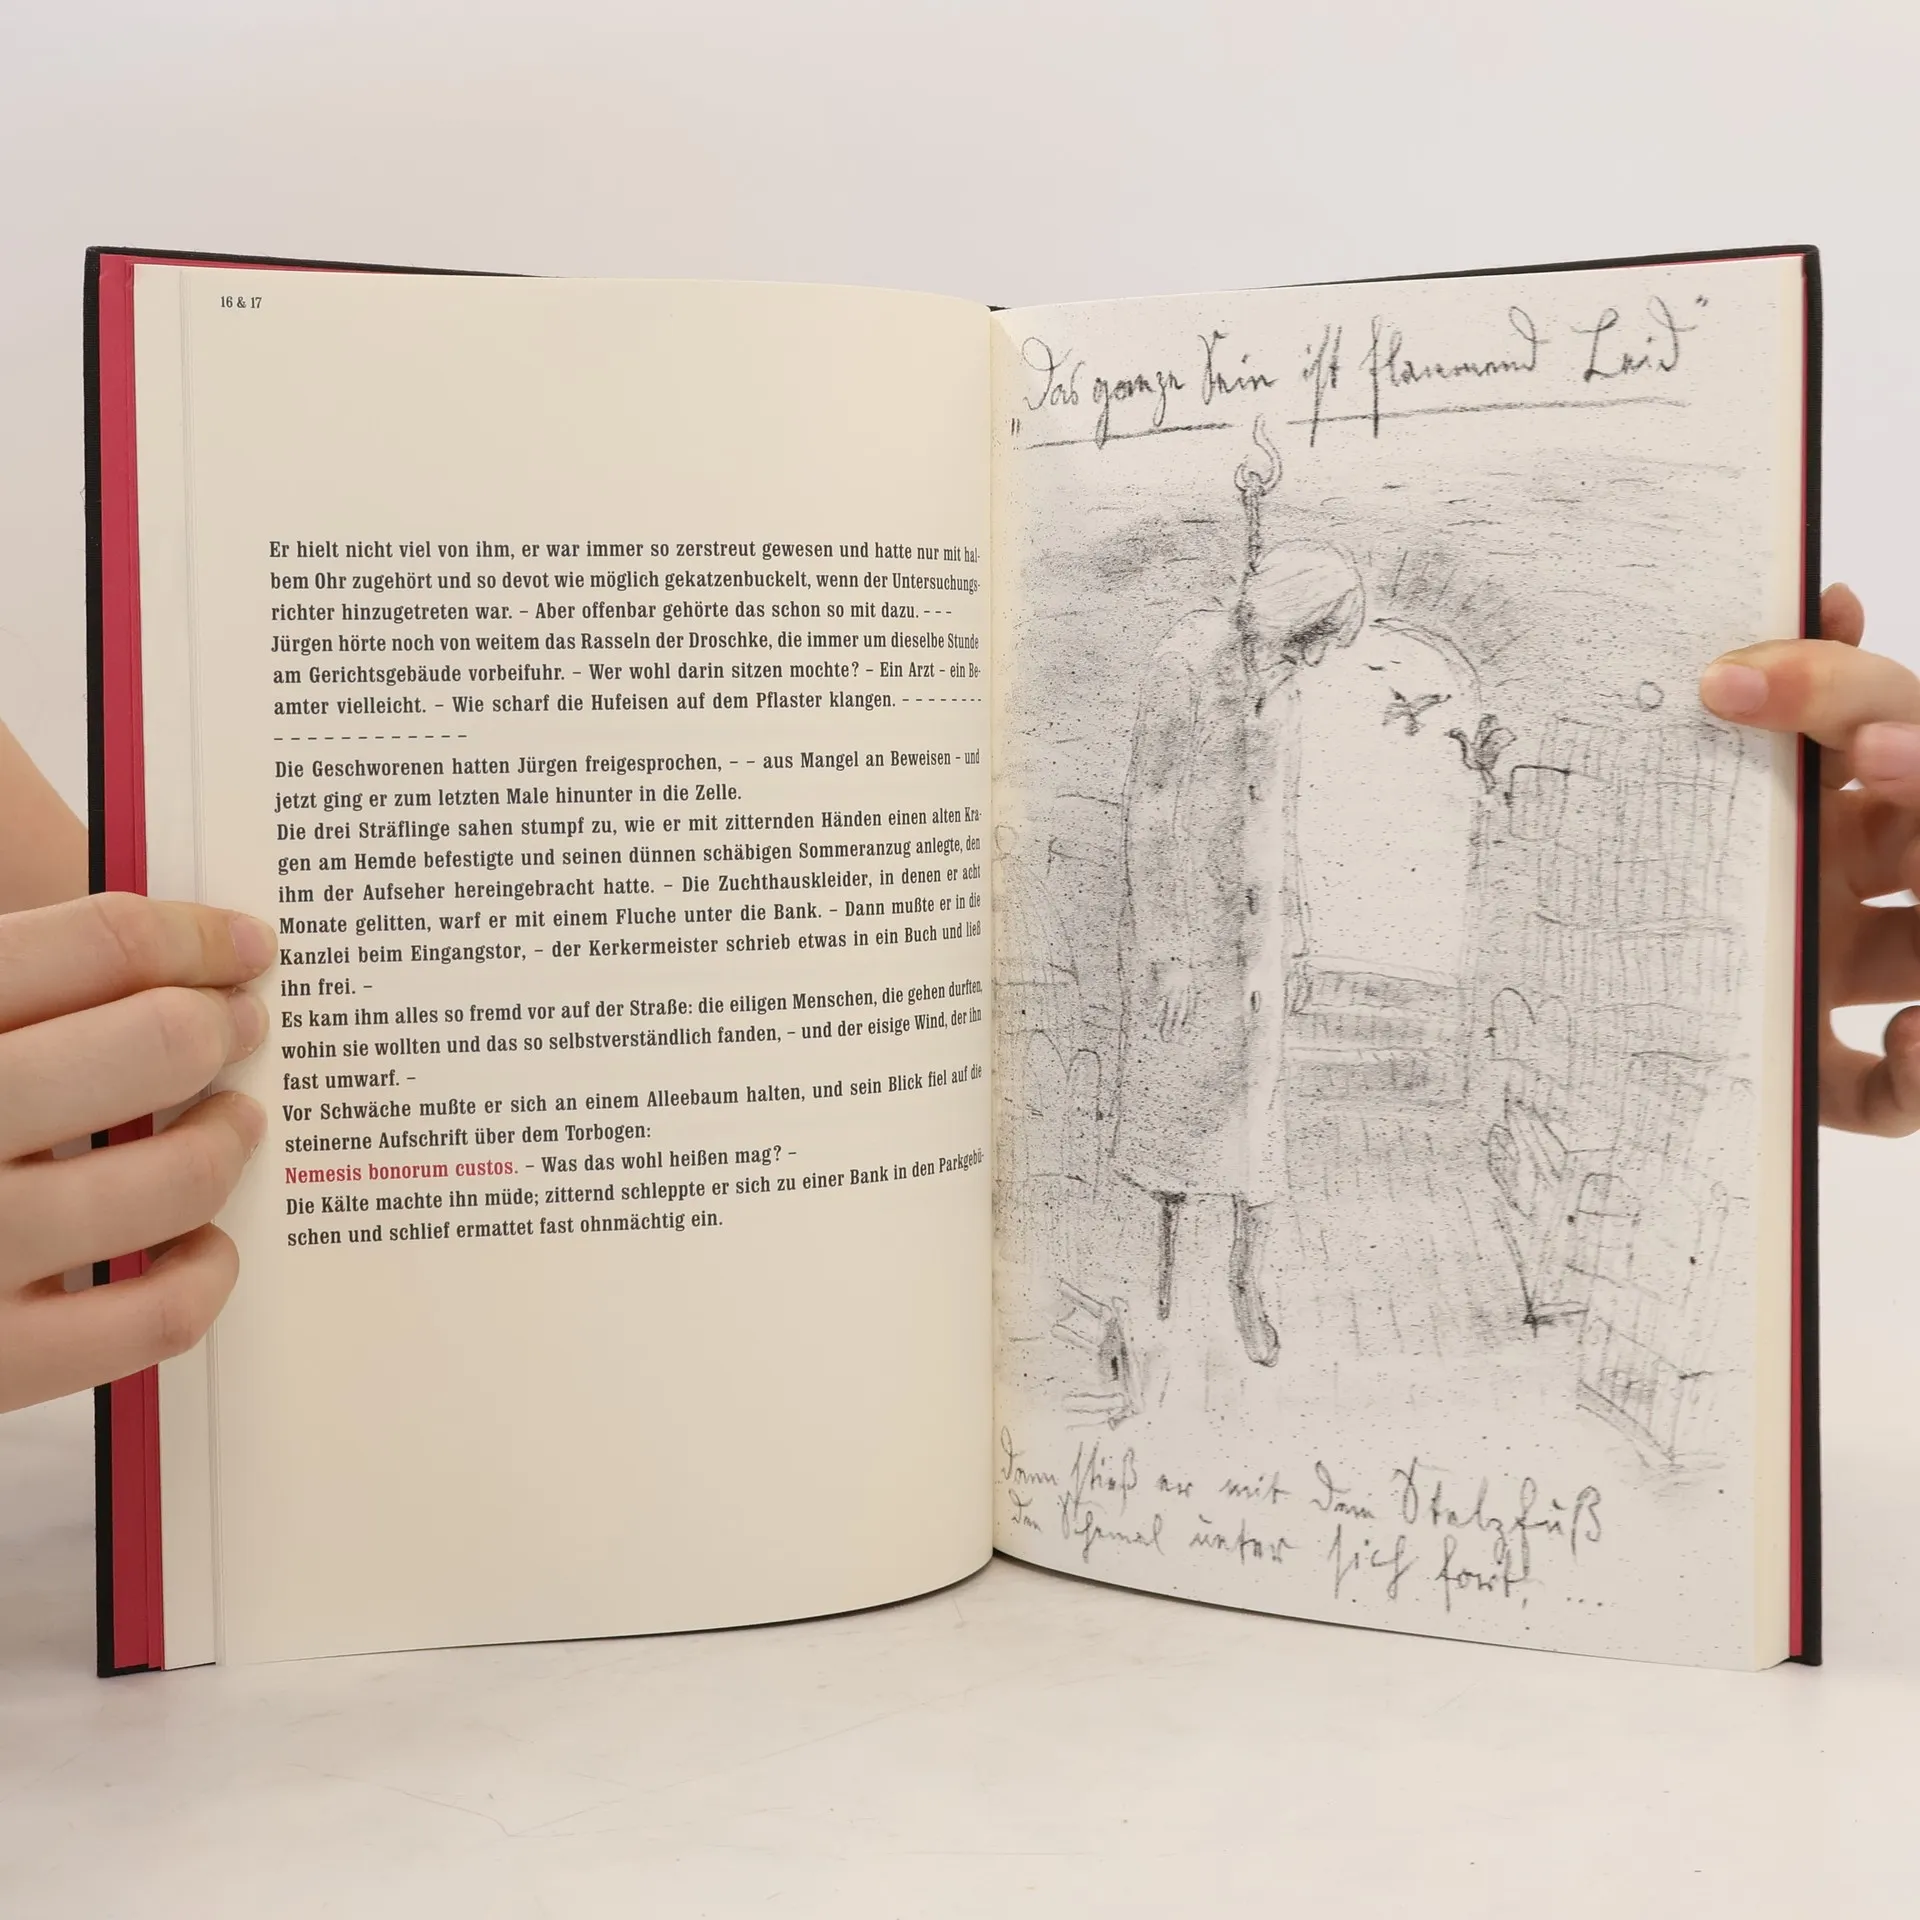 16 & 17
Er hielt nicht viel von ihm, er war immer so zerstreut gewesen und hatte nur mit hal-
bem Ohr zugehört und so devot wie möglich gekatzenbuckelt, wenn der Untersuchungs-
richter hinzugetreten war. – Aber offenbar gehörte das schon so mit dazu. - - -
Jürgen hörte noch von weitem das Rasseln der Droschke, die immer um dieselbe Stunde
am Gerichtsgebäude vorbeifuhr. – Wer wohl darin sitzen mochte? – Ein Arzt – ein Be-
amter vielleicht. – Wie scharf die Hufeisen auf dem Pflaster klangen. - - - - - - - -
– – – – – – – – – – – –
Die Geschworenen hatten Jürgen freigesprochen, – – aus Mangel an Beweisen – und
jetzt ging er zum letzten Male hinunter in die Zelle.
Die drei Sträflinge sahen stumpf zu, wie er mit zitternden Händen einen alten Kra-
gen am Hemde befestigte und seinen dünnen schäbigen Sommeranzug anlegte, den
ihm der Aufseher hereingebracht hatte. – Die Zuchthauskleider, in denen er acht
Monate gelitten, warf er mit einem Fluche unter die Bank. – Dann mußte er in die
Kanzlei beim Eingangstor, – der Kerkermeister schrieb etwas in ein Buch und ließ
ihn frei. –
Es kam ihm alles so fremd vor auf der Straße: die eiligen Menschen, die gehen durften,
wohin sie wollten und das so selbstverständlich fanden, – und der eisige Wind, der ihn
fast umwarf. –
Vor Schwäche mußte er sich an einem Alleebaum halten, und sein Blick fiel auf die
steinerne Aufschrift über dem Torbogen:
Nemesis bonorum custos. – Was das wohl heißen mag? –
Die Kälte machte ihn müde; zitternd schleppte er sich zu einer Bank in den Parkgebü-
schen und schlief ermattet fast ohnmächtig ein.
„Das ganze Sein ist flammend Leid"
Dann stieß er mit dem Stelzfuß
den Schemel unter sich fort, ...